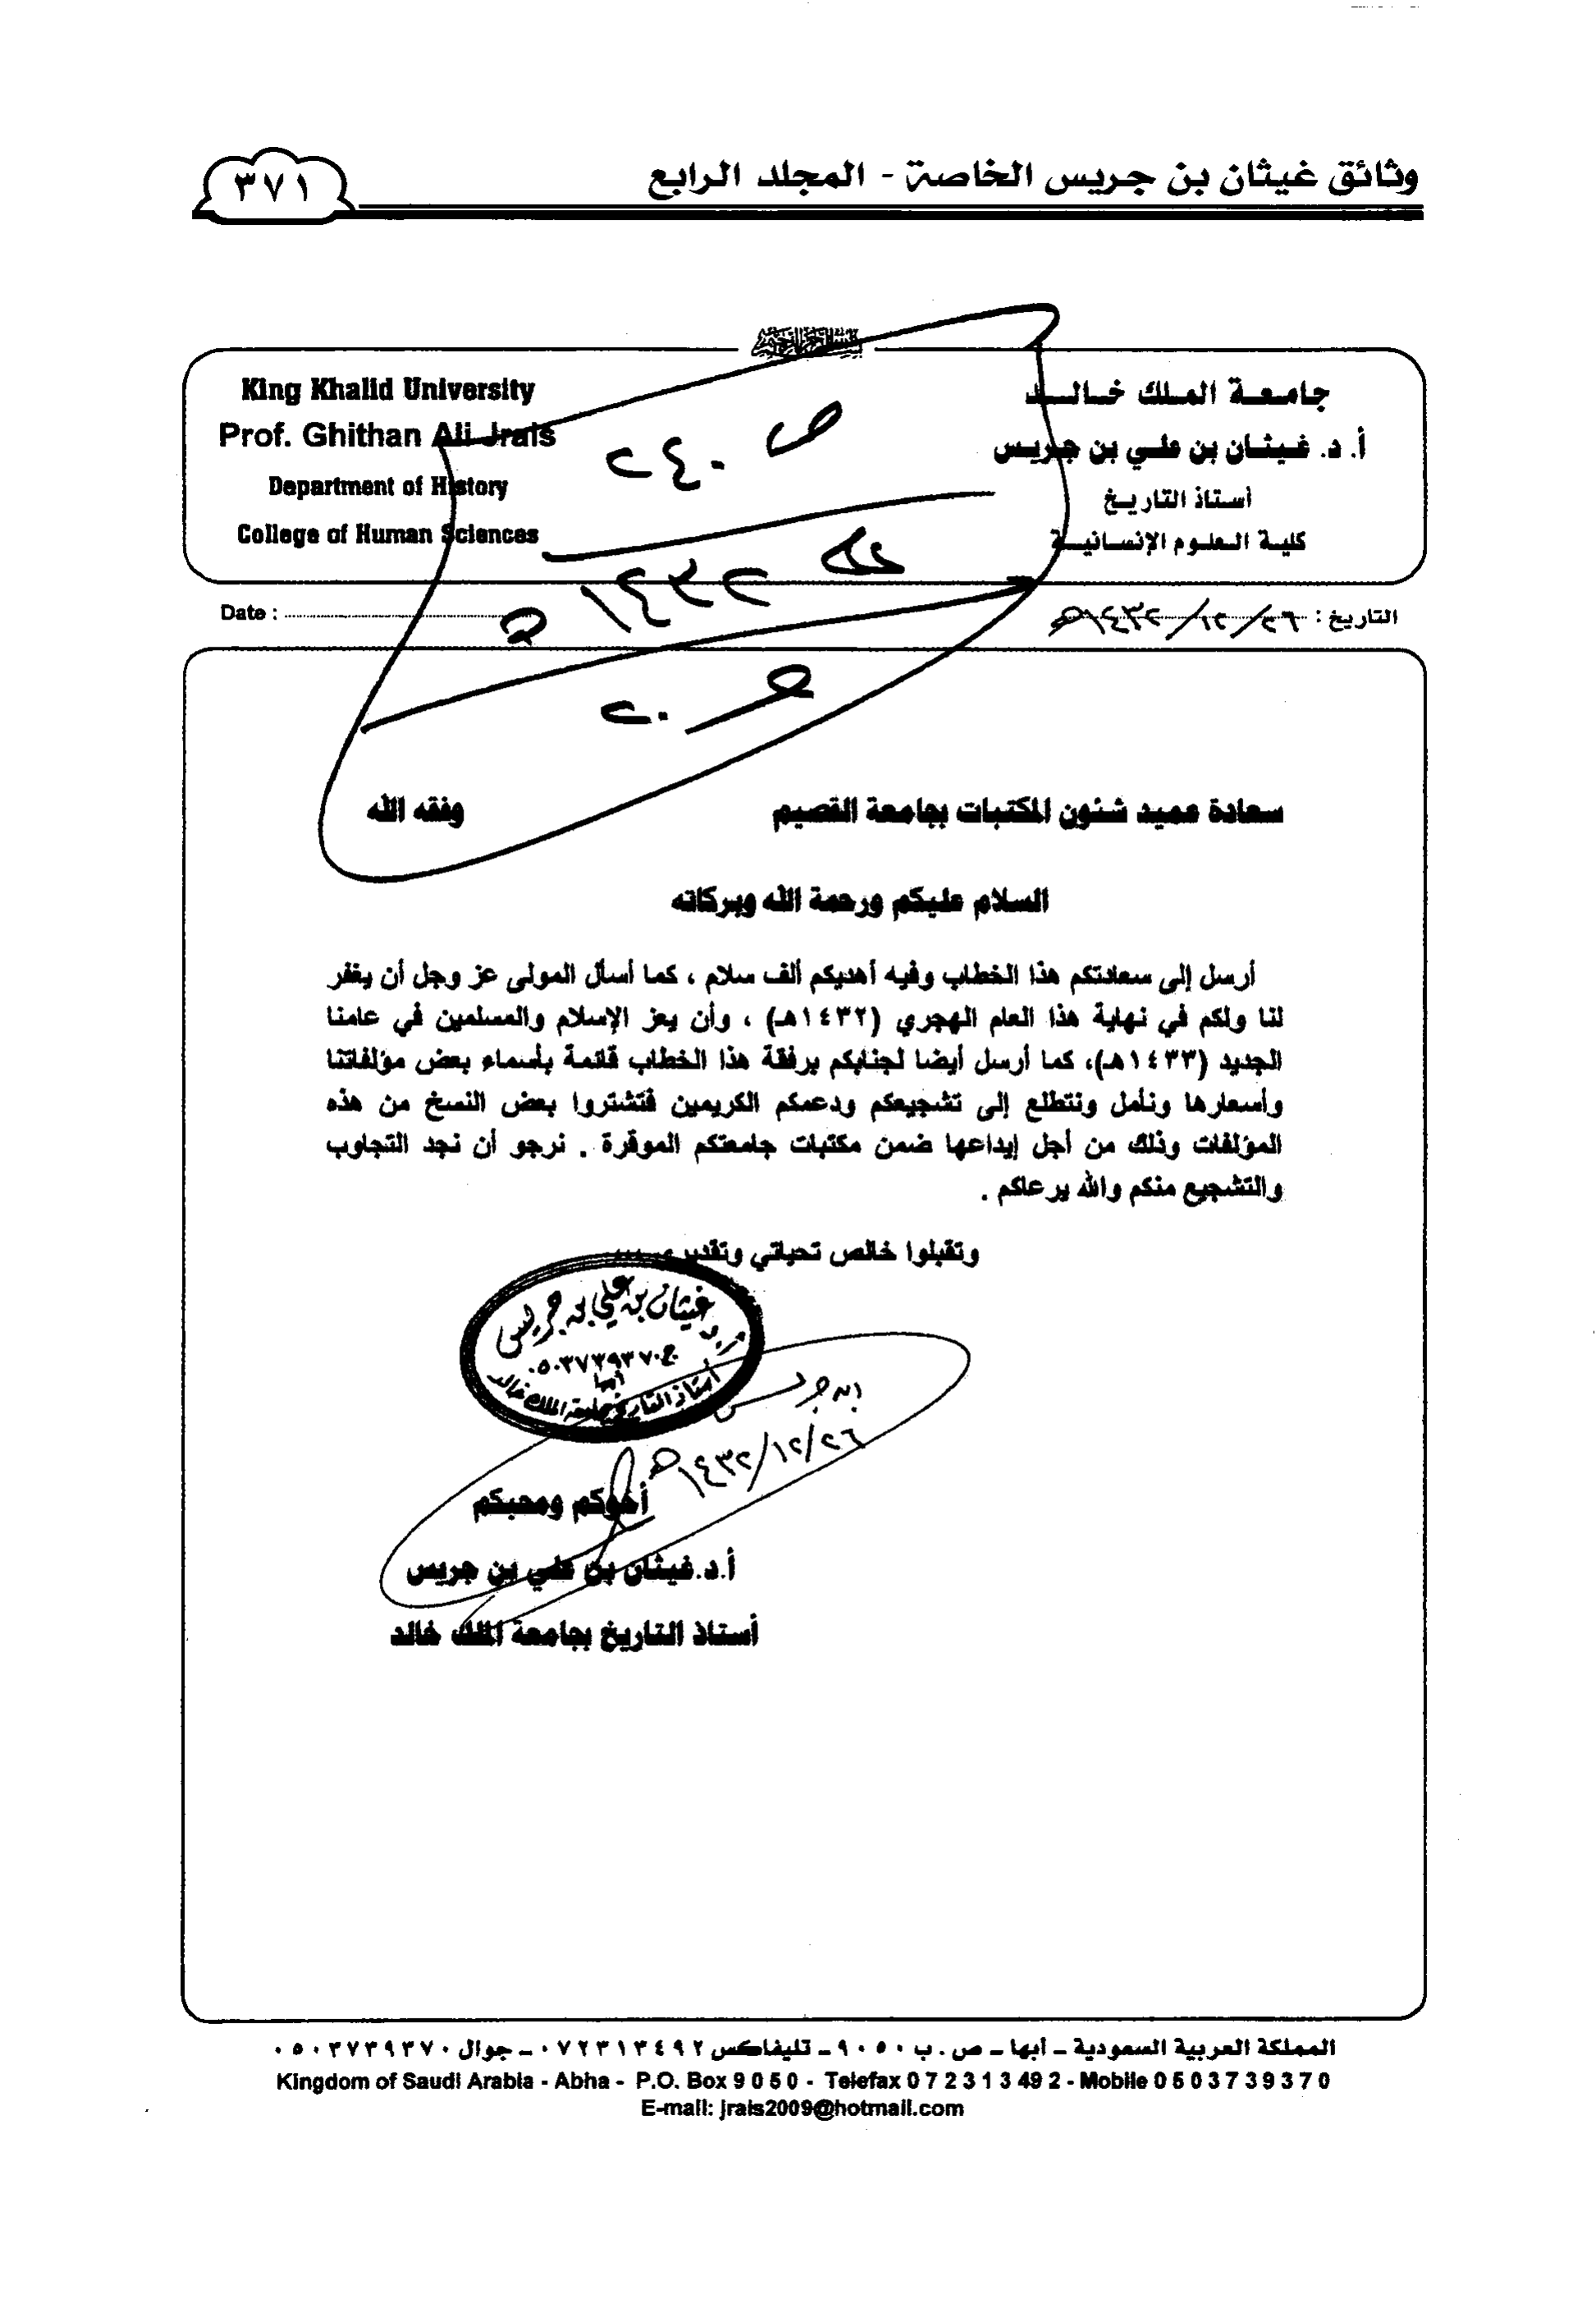 وثائق غيثان بن جريس الخاصة - المجلد الرابع
٣٧١
جامعة الملك خالد
أ. د. غيثان بن علي بن جريس
أستاذ التاريخ
كلية العلوم الإنسانية
King Khalid University
Prof. Ghithan Ali Jrais
Department of History
College of Human Sciences
ص ٢٤٠
١٤٣٢ هـ
التاريخ : ١٤٣٢/١٢/٢٦هـ
Date :
سعادة عميد شئون المكتبات بجامعة القصيم وفقه الله
السلام عليكم ورحمة الله وبركاته
أرسل إلى سعادتكم هذا الخطاب وفيه أهديكم ألف سلام ، كما أسأل المولى عز وجل أن يغفر
لنا ولكم في نهاية هذا العام الهجري (١٤٣٢هـ) ، وأن يعز الإسلام والمسلمين في عامنا
الجديد (١٤٣٣هـ)، كما أرسل أيضا لجنابكم برفقة هذا الخطاب قائمة بأسماء بعض مؤلفاتنا
وأسعارها ونأمل ونتطلع إلى تشجيعكم ودعمكم الكريمين فتشتروا بعض النسخ من هذه
المؤلفات وذلك من أجل إيداعها ضمن مكتبات جامعتكم الموقرة . نرجو أن نجد التجاوب
والتشجيع منكم والله يرعاكم .
وتقبلوا خالص تحياتي وتقديري ...
غيثان بن علي بن جريس
ج٠٥٠٣٧٣٩٣٧٠
أبها
أستاذ التاريخ بجامعة الملك خالد
ابن جريس
١٤٣٢/١٢/٢٦هـ
أخوكم ومحبكم
أ.د.غيثان بن علي بن جريس
أستاذ التاريخ بجامعة الملك خالد
المملكة العربية السعودية – أبها – ص . ب ٩٠٥٠ – تليفاكس ٠٧٢٣١٣٤٩٢ – جوال ٠٥٠٣٧٣٩٣٧٠
Kingdom of Saudi Arabia - Abha - P.O. Box 9 0 5 0 - Telefax 0 7 2 3 1 3 49 2 - Mobile 0 5 0 3 7 3 9 3 7 0
E-mail: jrais2009@hotmail.com